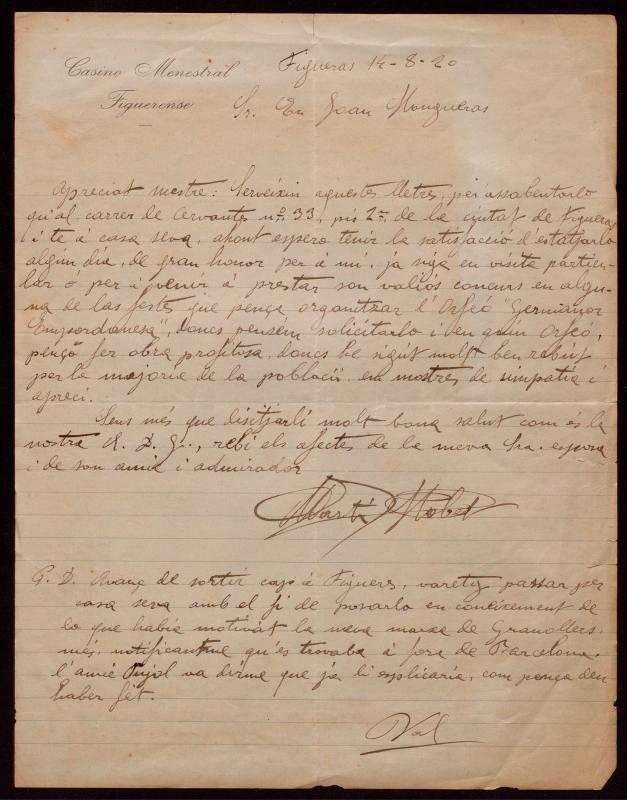 Casino Menestral
Figuerense
Figueras 14-8-20
Sr. En Joan Mongueras
Apreciat mestre: Serveixin aquestes lletres, per assabentarlo
qu'al carrer de Cervantes nº 33, pis 2n. de la ciutat de Figueras
i te á casa seva, ahont espero tenir la satisfacció d'estatjarlo
algun dia, de gran honor per á mi, ja siga en visita particu-
lar ó per á venir á prestar son valiós concurs en algu-
na de las festes que pença organitzar l'Orfeó "Germanor
Empordanesa", doncs pensém solicitarlo i ven quin Orfeó,
penço fer obra profitosa, doncs he sigut molt ben rebut
per la majoria de la població, en mostres de simpatia i
apreci.
Sens més que disitjarli molt bona salut com és la
nostra A. D. G., rebi els afectes de la meva Sra. esposa
i de son amic i admirador
Martí
P. D. Avanç de sortir cap á Figueres, vareig passar per
casa seva amb el fi de posarlo en coneixement de
lo que habia motivat la meva marxa de Granollers,
més, notificantme qu'es trovaba á fora de Barcelona.
l'amic Pujol va dirme que ja li esplicaria, com penço deu
haber fét.
Val